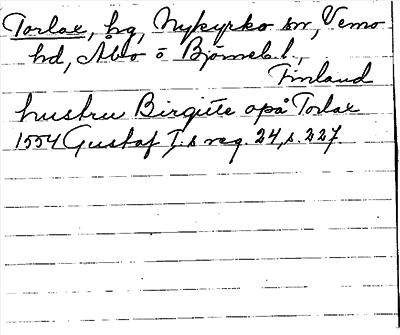 Torlax, hg, Nykyrko sn, Vemo
hd, Åbo o Björneb. l.,
Finland
hustru Birgitte opå Torlax
1554 Gustaf I:s reg. 24, s. 227.